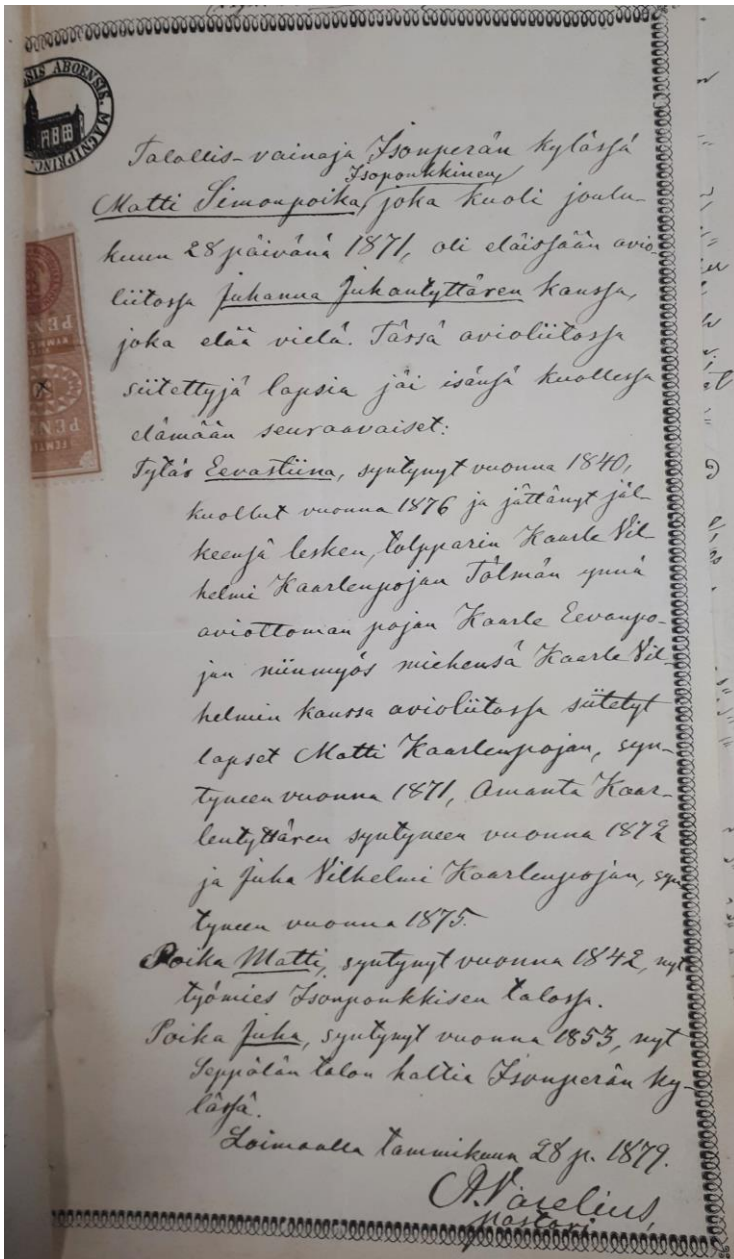 SIS ABOENSIS. MAGNIPRINC.
Talollis-vainaja Isonperän kylässä
Isoponkkinen,
Matti Simonpoika, joka kuoli joulu-
kuun 28 päivänä 1871, oli eläissään avio-
liitossa Juhanna Juhantyttären kanssa,
joka elää vielä. Tässä avioliitossa
siitettyjä lapsia jäi isänsä kuollessa
elämään seuraavaiset:
PEN
PEN
Tytär Eevastiina, syntynyt vuonna 1840,
kuollut vuonna 1876 ja jättänyt jäl-
keensä lesken, tolpparin Kaarle Vil-
helmi Kaarlenpojan Tölmän ynnä
aviottoman pojan Kaarle Eevanpo-
jan niinmyös miehensä Kaarle Vil-
helmin kanssa avioliitossa siitetyt
lapset Matti Kaarlenpojan, syn-
tyneen vuonna 1871, Amanta Kaar-
lentyttären syntyneen vuonna 1872
ja Juha Vilhelmi Kaarlenpojan, syn-
tyneen vuonna 1875.
Poika Matti, syntynyt vuonna 1842, nyt
työmies Isonponkkisen talossa.
Poika Juha, syntynyt vuonna 1853, nyt
Seppälän talon haltia Isonperän ky-
lässä.
Loimaalla tammikuun 28 p. 1879.
A. Varelius,
pastori.